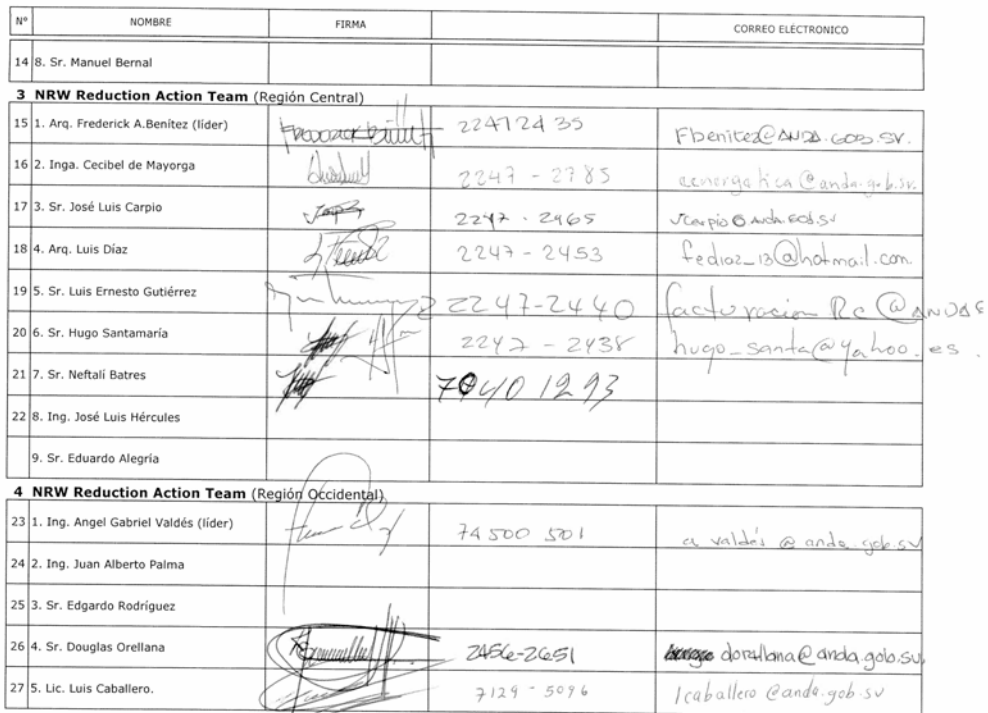 Nº NOMBRE FIRMA CORREO ELÉCTRONICO
14 8. Sr. Manuel Bernal
3 NRW Reduction Action Team (Región Central)
15 1. Arq. Frederick A.Benítez (líder) 22472435 Fbenitez@ANDA.GOB.SV.
16 2. Inga. Cecibel de Mayorga 2247 - 2785 @anda.gob.sv.
17 3. Sr. José Luis Carpio 2247 - 2965 Jcarpio@anda.gob.sv
18 4. Arq. Luis Díaz 2247 - 2453 fediaz_13@hotmail.com
19 5. Sr. Luis Ernesto Gutiérrez 2247-2440 facturacion Rc @ANDA
20 6. Sr. Hugo Santamaría 2247 - 2438 hugo_santa@yahoo.es.
21 7. Sr. Neftalí Batres 70401293
22 8. Ing. José Luis Hércules
9. Sr. Eduardo Alegría
4 NRW Reduction Action Team (Región Occidental)
23 1. Ing. Angel Gabriel Valdés (líder) 74500 501 a valdés @ anda.gob.sv
24 2. Ing. Juan Alberto Palma
25 3. Sr. Edgardo Rodríguez
26 4. Sr. Douglas Orellana 2456-2651 dorellana@anda.gob.sv.
27 5. Lic. Luis Caballero. 7129 - 5096 lcaballero @anda.gob.sv